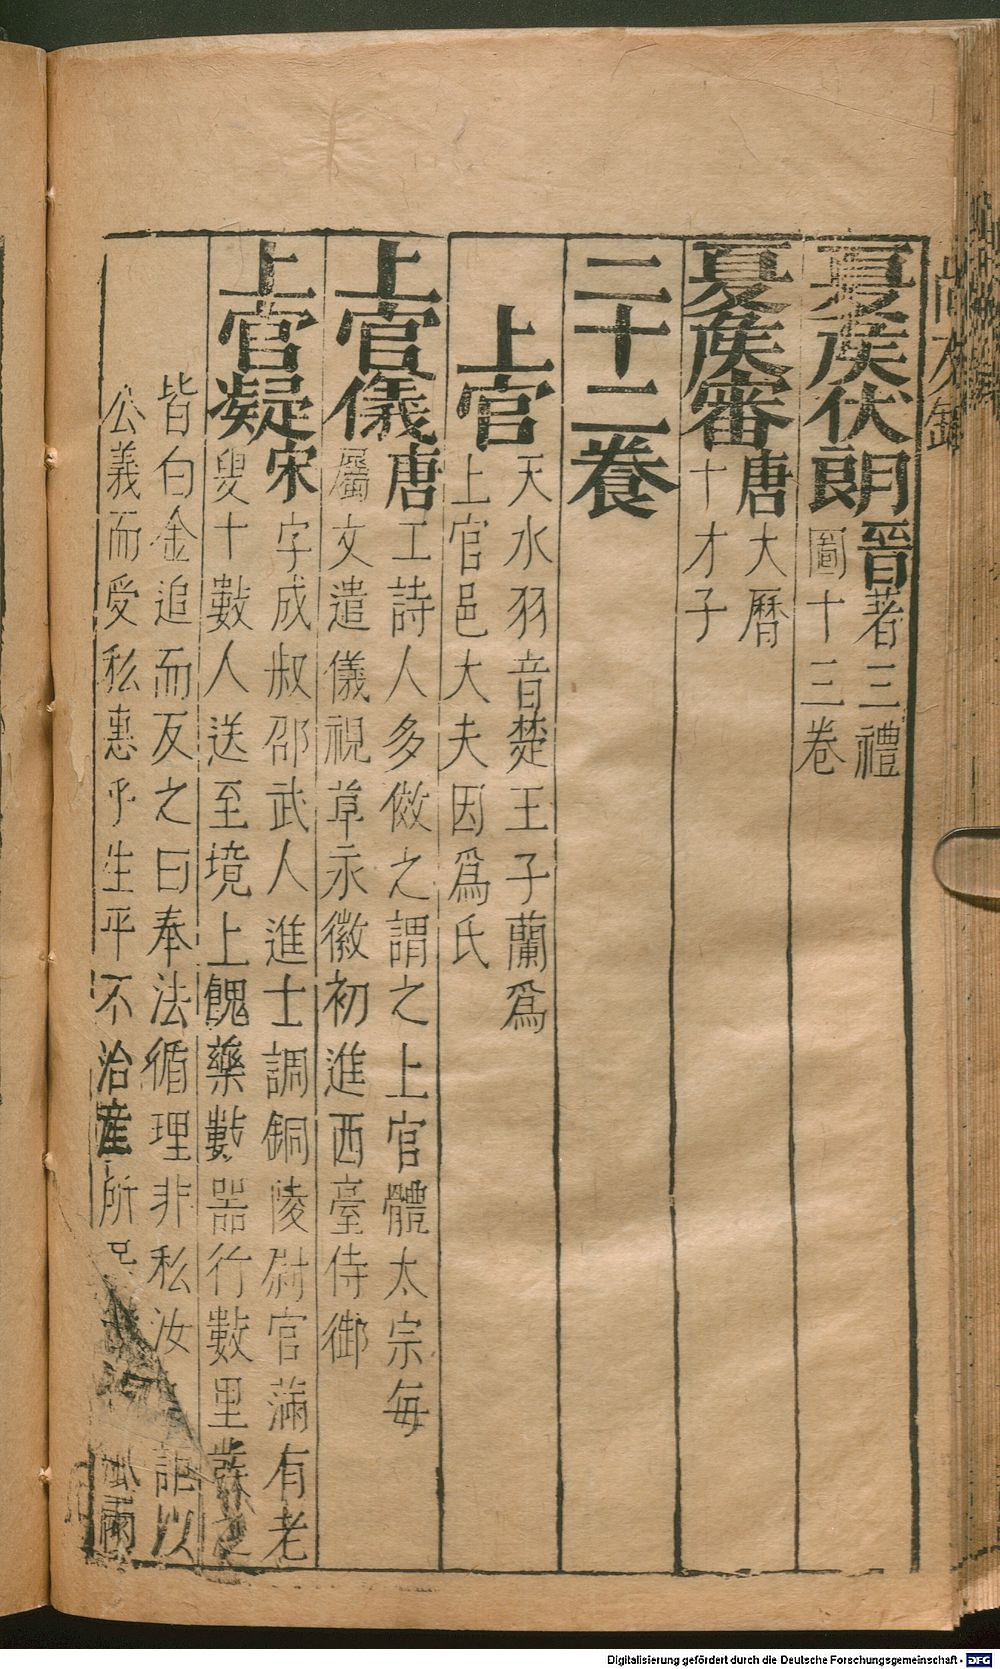 夏矦伏朗晉著三禮
圖十三卷
夏矦審唐大曆
十才子
二十二養
上官天水羽音楚王子蘭爲
上官邑大夫因爲氏
上官儀唐工詩人多倣之謂之上官體太宗每
屬文遣儀視草永徽初進西臺侍御
上官凝宋字成叔邵武人進士調銅陵尉官滿有老
叟十數人送至境上餽藥數器行數里蘇之
皆白金追而反之曰奉法循理非私汝詎以
公義而受私惠乎生平不治産所風雨
尚友錄
Digitalisierung gefördert durch die Deutsche Forschungsgemeinschaft - DFG